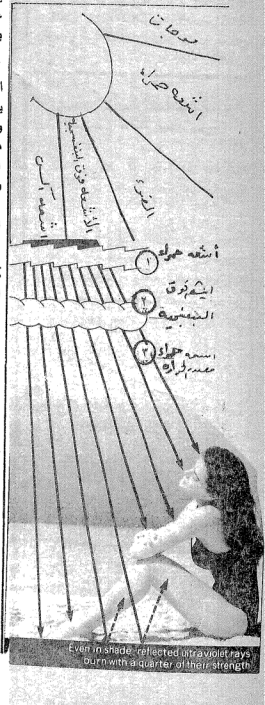 موجات
اشعه حمراء
الضوء
الأشعه فوق البنفسجيه
اشعه اكس
أشعه حمراء ١
٢ فوق
البنفسجية
٣ اشعه حمراء
مصدر الحراره
Even in shade reflected ultraviolet rays
burn with a quarter of their strength